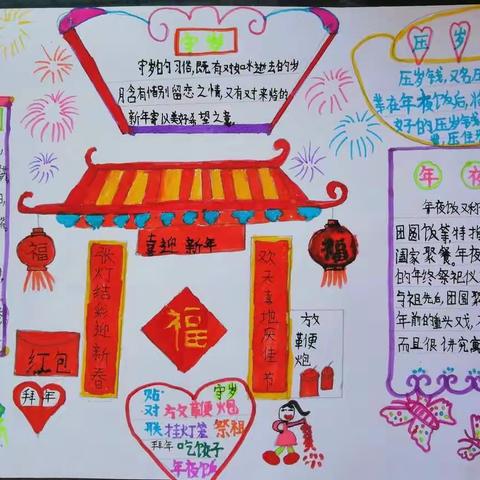 守岁
守岁的习俗,既有对如水逝去的岁
月含有惜别留恋之情,又有对来临的
新年寄以美好希望之意。
压岁
压岁钱,又名压
年夜饭后,将
好的压岁钱
压住
年夜
年夜饭又称
团圆饭等,特指
阖家聚餐。年夜
的年终祭祀仪
与祖先后,团圆聚
年前的重头戏,
而且很讲究寓
喜迎新年
福
福
张灯结彩迎新春
欢天喜地庆佳节
福
红包
拜年
放鞭炮
贴对联
守岁
放鞭炮
挂灯笼
祭祖
拜年
吃饺子
年夜饭